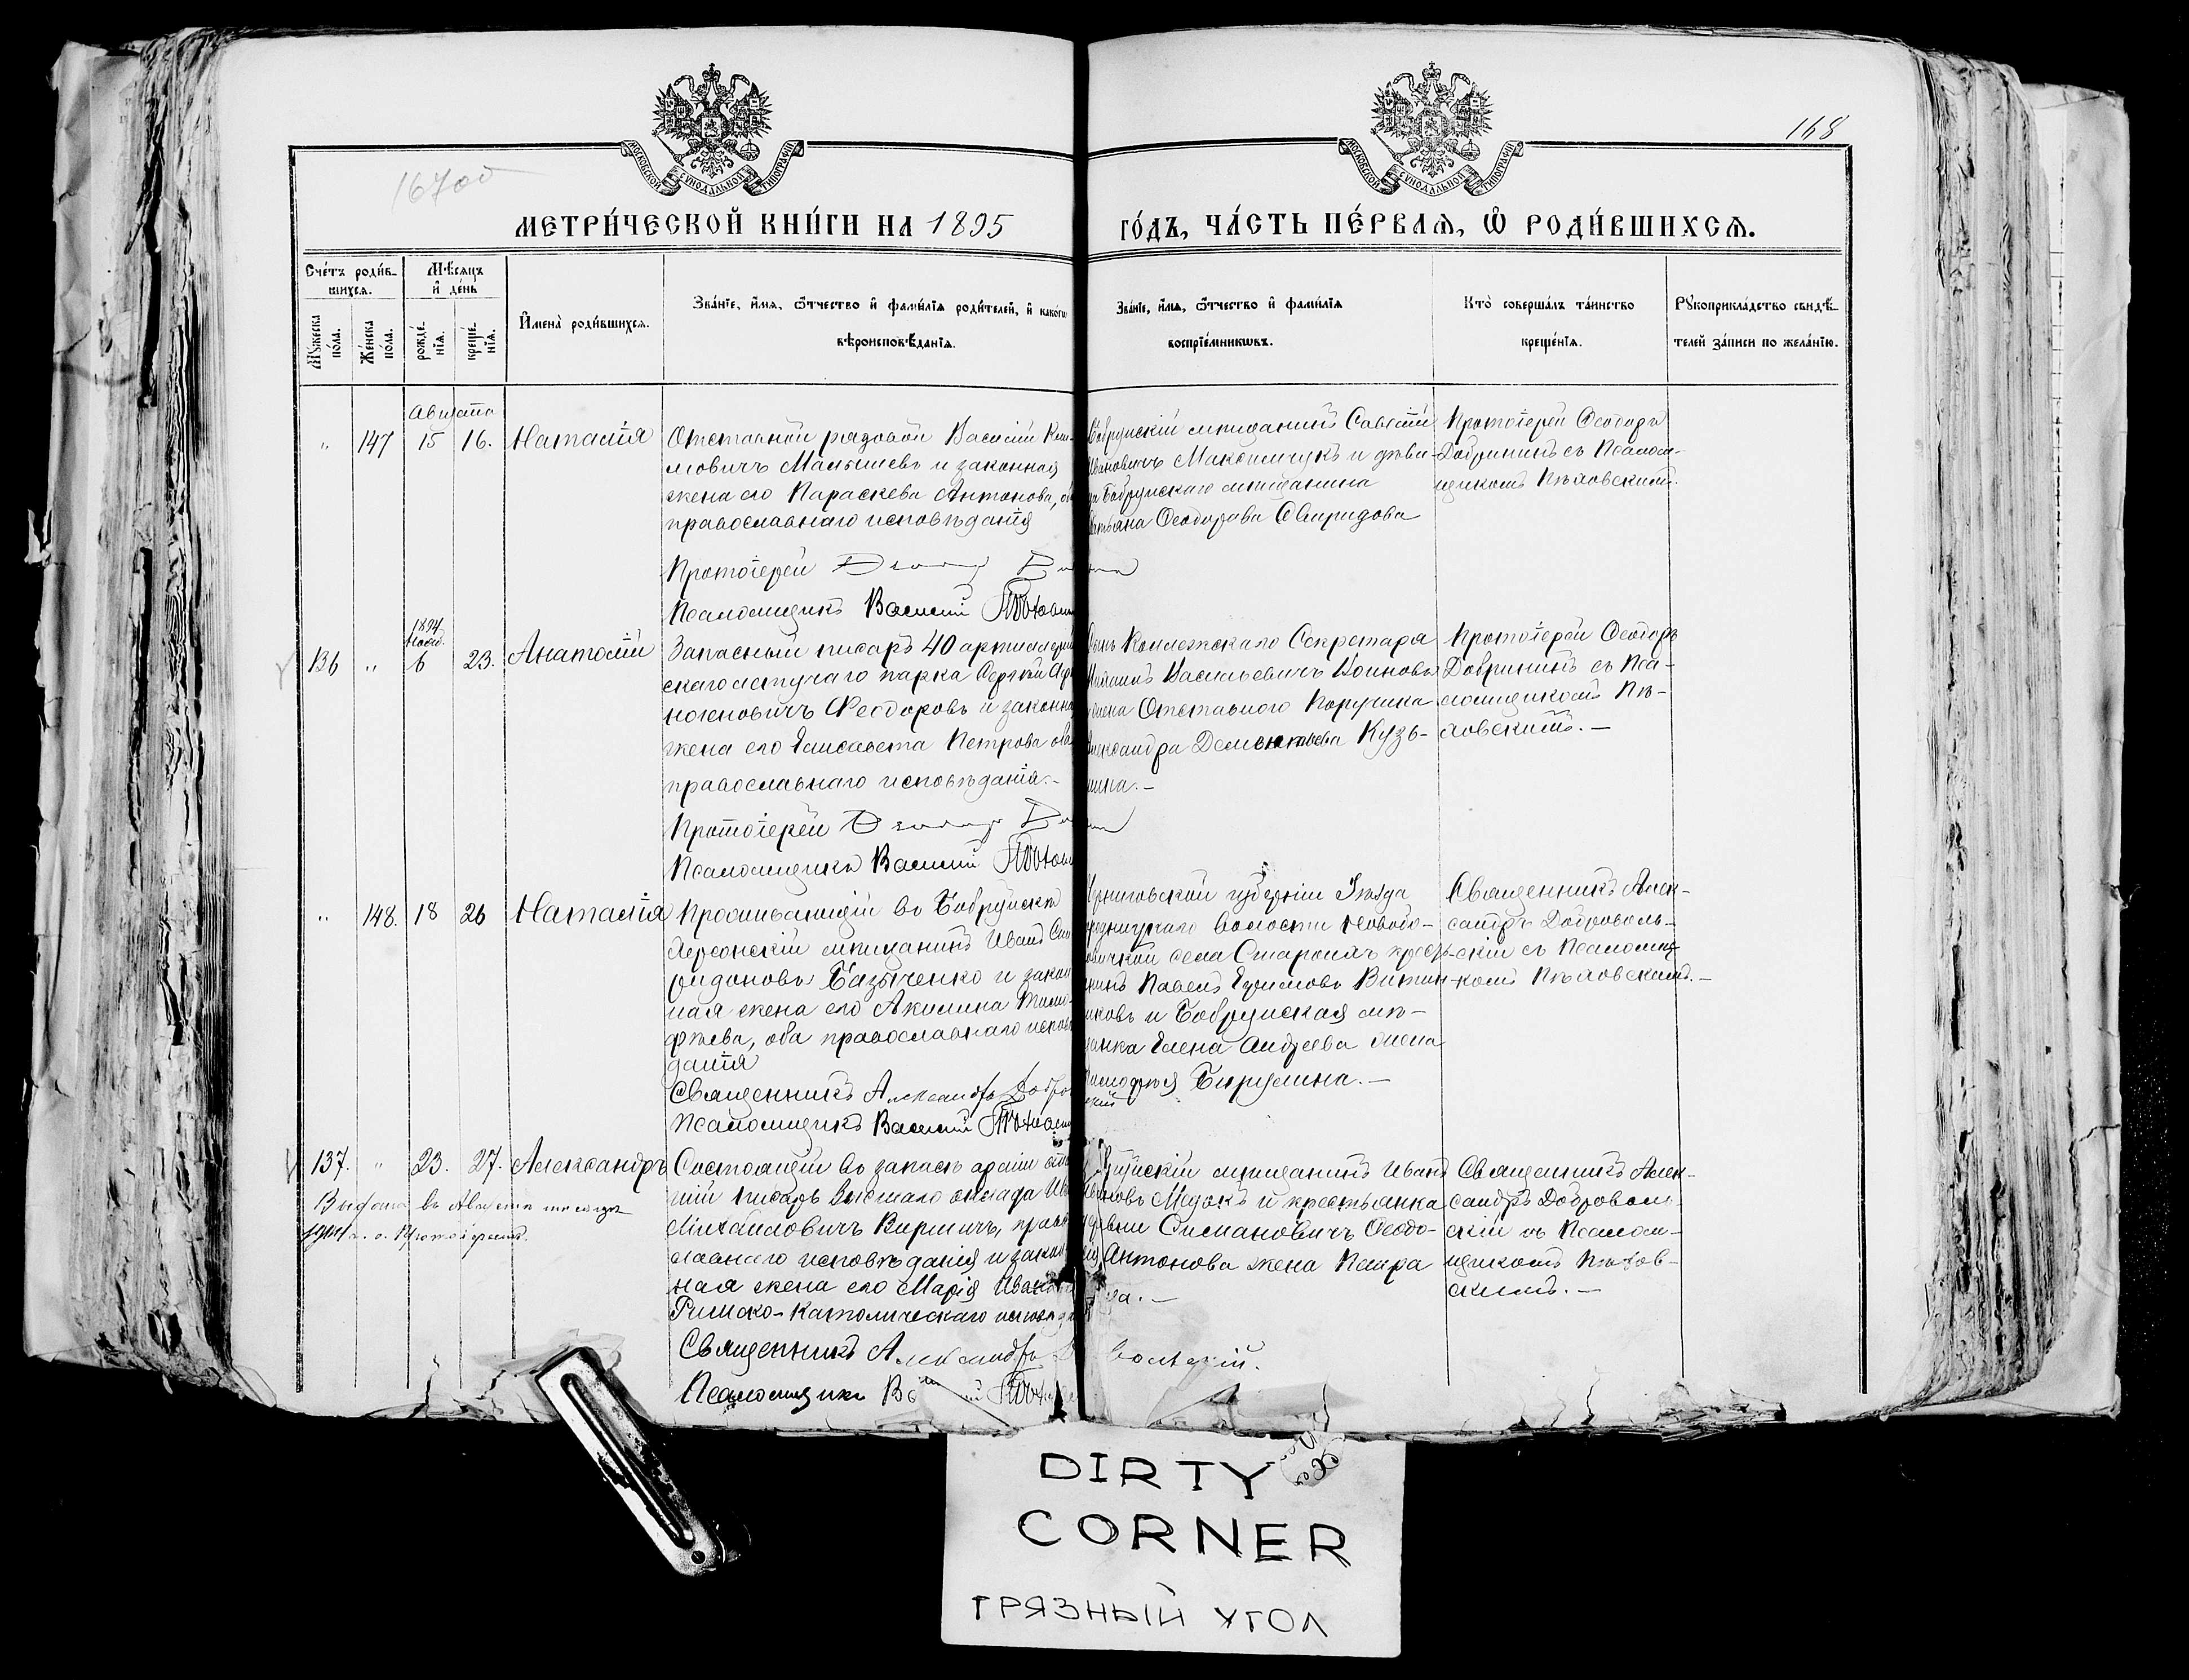 168
167об
МОСКОВСКОЙ СѴНОДАЛЬНОЙ ТИПОГРАФІИ
МОСКОВСКОЙ СѴНОДАЛЬНОЙ ТИПОГРАФІИ
МЕТРИ́ЧЕСКОЙ КНИ́ГИ НА 1895
ГО́ДЪ, ЧА́СТЬ ПЕ́РВАѦ, Ѡ҆ РОДИ́ВШИХСѦ.
Сче́тъ роди́в-
шихсѧ.
Мѣ́сѧцъ
и҆ де́нь
Мꙋ́жеска
по́ла.
Же́нска
по́ла.
рожде́-
нїѧ.
креще́-
нїѧ.
И҆мена̀ роди́вшихсѧ.
Зва́нїе, и҆́мѧ, ѻ҆́тчество и҆ фамѝлїѧ роди́телей, и҆ како́гѡ
вѣроисповѣ́данїѧ.
Зва́нїе, и҆́мѧ, ѻ҆́тчество и҆ фамѝлїѧ
воспрїе́мникѡвъ.
Кто̀ соверша́лъ та́инство
креще́нїѧ.
Рꙋкоприкла́дство свидѣ́-
телей за́писи по жела́нїю.
Августа
" 147 15 16. Наталія
Отставной рядовой Василій
ловичъ Малышевъ и законная
жена его Параскева Антонова,
православнаго исповѣданія
Протоіерей
Псаломщикъ Василій
Бобруйскій мѣщанинъ Савватій
Ивановичъ Максимчукъ и дѣви-
ца Бобруйскаго мѣщанина
Татьяна Ѳеодорова Свиридова
Протоіерей Ѳеодоръ
Добрининъ съ Псалом-
щикомъ Пѣховскимъ.
1894
Нояб.
136 " 6 23. Анатолій
Запасный писарь 40 артиллерій
скаго летучаго парка Сергѣй
ногеновичъ Ѳеодоровъ и законная
жена его Елисавета Петрова оба
православнаго исповѣданія.-
Протоіерей
Псаломщикъ Василій
Сынъ Коллежскаго Секретаря
Михаилъ Васильевичъ Воиновъ
жена Отставного Поручика
Александра Дементьева Кузь-
мина.-
Протоіерей Ѳеодоръ
Добрининъ съ Пса-
ломщикомъ Пѣ-
ховскимъ.-
" 148. 18 26 Наталія
Проживающій въ Бобруйскѣ
Херсонскій мѣщанинъ Иванъ Спи
ридоновъ Базыченко и закон
ная жена его Акилина Тимо-
фѣева, оба православнаго исповѣ
данія
Священникъ Александръ Добро
Псаломщикъ Василій
Черниговской губерніи Уѣзда
Городницкаго волости Новобо-
ровичкой села Старохъ кресть-
янинъ Павелъ Ефимовъ Витин-
никовъ и Бобруйская мѣ-
щанка Елена Андреева жена
Тимофея Бирулина.-
Священникъ Алек-
сандръ Доброволь-
скій съ Псаломщи-
комъ Пѣховскимъ.-
137. " 23. 27. Александръ
Выдана въ Августѣ мѣсяцѣ
Состоящій въ запасѣ арміи
шій писарь высшаго оклада
Михайловичъ Киршичъ, право
славнаго исповѣданія и закон
ная жена его Марія Иванова
Римско-Католическаго исповѣда
Священникъ Александръ
Псаломщикъ
Бобруйскій мѣщанинъ Иванъ
Ивановъ Медокъ и крестьянка
деревни Симановичъ Ѳеодо-
сія Антонова жена Петра
ра.-
вольскій.
Священникъ Алек-
сандръ Доброволь-
скій съ Псалом-
щикомъ Пѣхов-
скимъ.-
DIRTY
CORNER
ГРЯЗНЫЙ УГОЛ